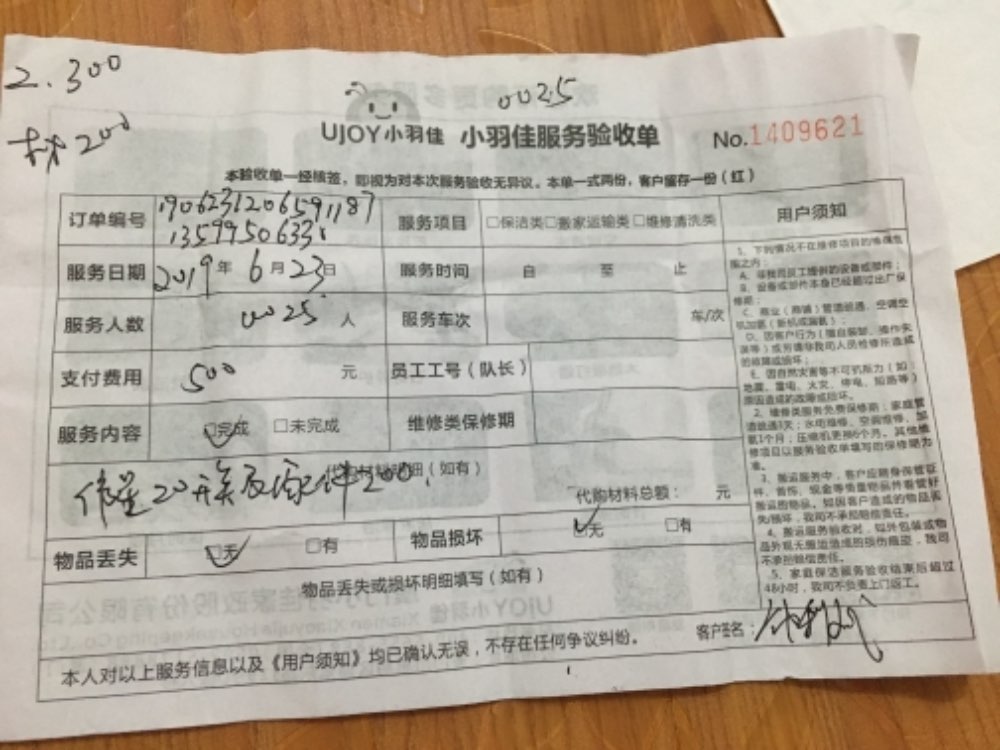 2.300
材200
0025
UJOY小羽佳 小羽佳服务验收单 No.1409621
本验收单一经核签，即视为对本次服务验收无异议。本单一式两份，客户留存一份（红）
订单编号 1906231206591187 13599506331 服务项目 □保洁类□搬家运输类□维修清洗类 用户须知
服务日期 2019年6月23日 服务时间 自 至 止
服务人数 0025 人 服务车次 车/次
支付费用 500 元 员工工号（队长）
服务内容 □完成 □未完成 维修类保修期
代购材料明细（如有）
20开关及配件200.
代购材料总额： 元
物品丢失 □无 □有 物品损坏 □无 □有
物品丢失或损坏明细填写（如有）
1、下列情况不在维修项目的维保范围之内：
A、非我司员工提供的设备或部件；
B、设备或部件本身已经超过出厂保修期；
C、商业（商铺）管道疏通、空调空机加氨（新机或漏氨）；
D、因客户行为（擅自装卸、操作失误等）或另请非我司人员检修所造成的故障或损坏；
E、因自然灾害等不可抗力（如：地震、雷电、火灾、停电、短路等）原因造成的故障或损坏。
2、维修类服务免费保修期：家庭管道疏通3天；水电维修、空调维修、加氨1个月；压缩机更换6个月。其他维修项目以服务验收单填写的保修期为准。
3、搬运服务中，客户应随身保管证件、首饰、现金等贵重物品并看管好搬运的物品。如因客户造成的物品丢失/损坏，我司不承担赔偿责任。
4、搬运服务验收时，如外包装或物品外观无搬运造成的损伤痕迹，我司不承担赔偿责任。
5、家庭保洁服务验收结束后超过48小时，我司不负责上门返工。
客户签名：
本人对以上服务信息以及《用户须知》均已确认无误，不存在任何争议纠纷。